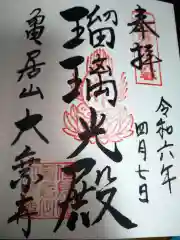 奉拝
令和六年
四月七日
瑠璃光殿
亀居山大念寺